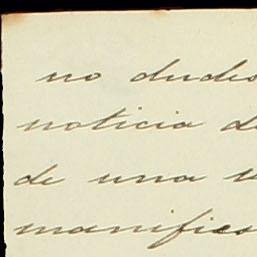 no dudes
noticia de
de una
manifies